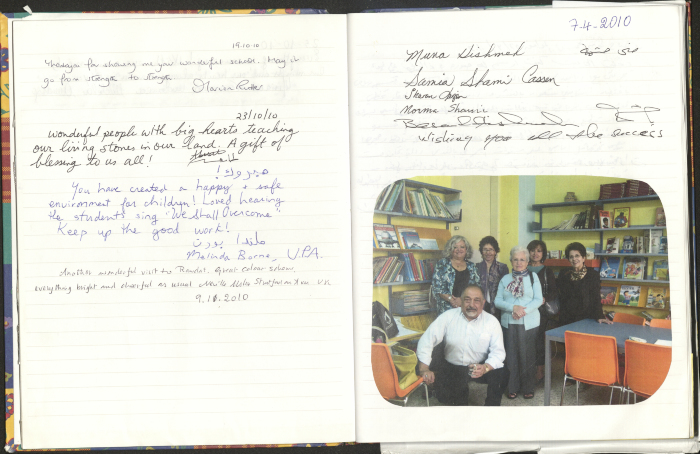 19.10.10
Thankyou for showing me your wonderful school. May it
go from strength to strength
23/10/10
wonderful people with big hearts teaching
our living stones in our land. A gift of
blessing to us all!
مبروك!
You have created a happy & safe
environment for children! Loved hearing
the students sing "We Shall Overcome"
Keep up the good work!
Melinda Borne, VPA.
Another wonderful visit to Ramallah. Great colour scheme.
everything bright and cheerful as usual.
9.10.2010
7-4-2010
Muna Hishmeh
Samia Shami Cassen
Norma Shamir
wishing you all the success